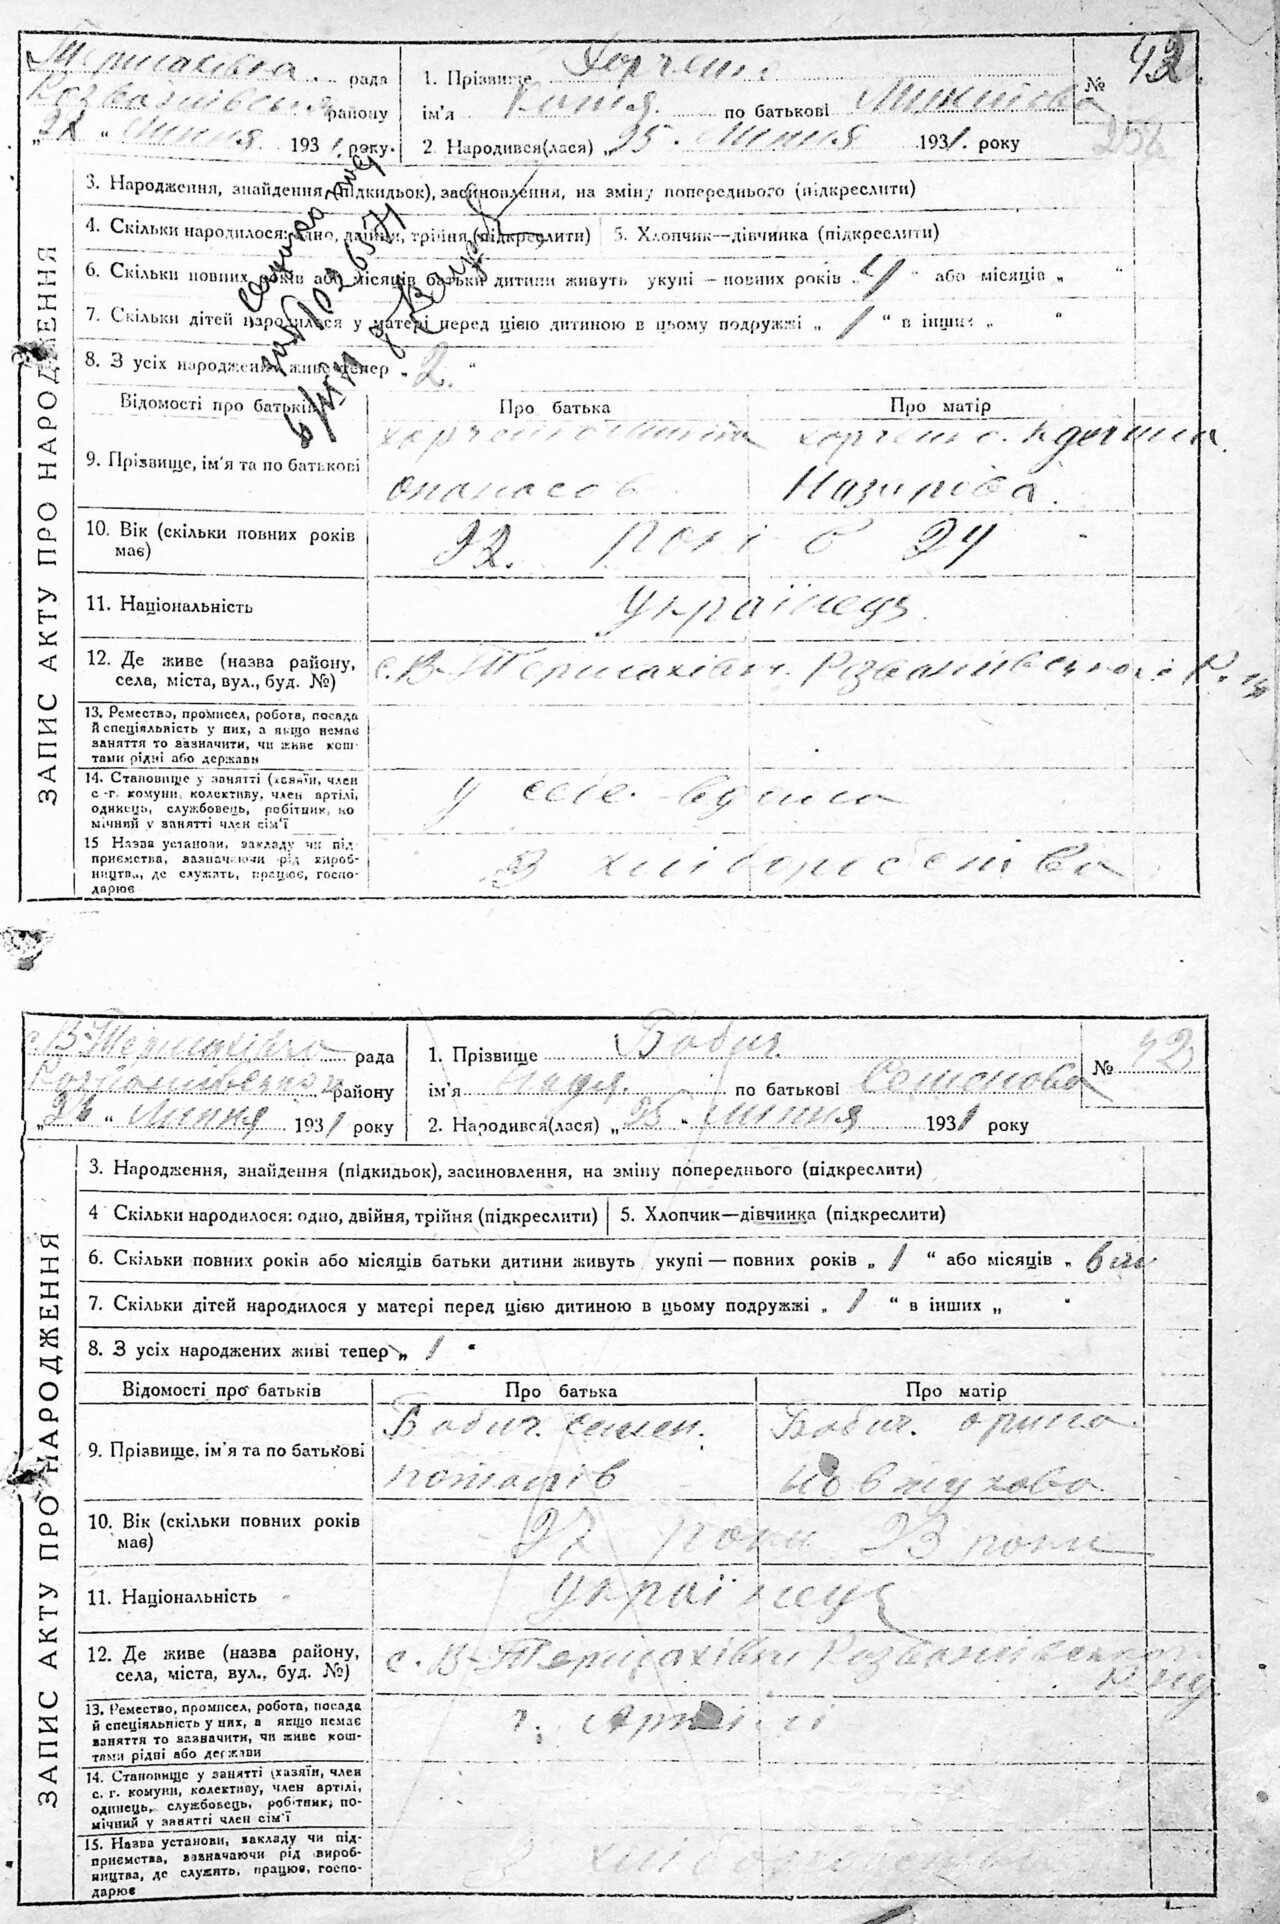 Термахівка рада
Розважівськ району
" липня 1931 року.
1. Прізвище Харченко
ім'я Катя по батькові Микитова
2. Народився(лася) „25 липня 1931. року
№ 42.
256
ЗАПИС АКТУ ПРО НАРОДЖЕННЯ
3. Народження, знайдення (підкидьок), засиновлення, на зміну попереднього (підкреслити)
4. Скільки народилося: одно, двійня, трійня (підкреслити) 5. Хлопчик—дівчинка (підкреслити)
6. Скільки повних років або місяців батьки дитини живуть укупі — повних років „ 4 " або місяців „ "
7. Скільки дітей народилося у матері перед цією дитиною в цьому подружжі „ 1 " в інших „ "
8. З усіх народжених живе тепер „ 2. "
Відомості про батьків Про батька Про матір
9. Прізвище, ім'я та по батькові
Харченко Микита Харченко.
опанасов Назирова.
10. Вік (скільки повних років має) 22. років 24
11. Національність українець
12. Де живе (назва району, села, міста, вул., буд. №) с. В-Термахівка Розважівського
13. Ремество, промисел, робота, посада
й спеціяльність у них, а якщо немає
заняття то зазначити, чи живе кош-
тами рідні або держави
14. Становище у занятті (хазяїн, член
с.-г. комуни, колективу, член артілі,
одинець, службовець, робітник, по
мічний у занятті член сім'ї
у
15 Назва установи, закладу чи під-
приємства, зазначаючи рід вироб-
ництва, де служать, працює, госпо-
дарює
В хліборобства
с. В-Термахівка рада
Розважівського району
„ " липня 1931 року
1. Прізвище Бабич
ім'я Надя. по батькові Семенова
2. Народився(лася) „ 25 " липня 1931 року
№ 42
ЗАПИС АКТУ ПРО НАРОДЖЕННЯ
3. Народження, знайдення (підкидьок), засиновлення, на зміну попереднього (підкреслити)
4 Скільки народилося: одно, двійня, трійня (підкреслити) 5. Хлопчик—дівчинка (підкреслити)
6. Скільки повних років або місяців батьки дитини живуть укупі — повних років „ 1 " або місяців „ 6 м
7. Скільки дітей народилося у матері перед цією дитиною в цьому подружжі „ 1 " в інших „ "
8. З усіх народжених живі тепер „ 1 "
Відомості про батьків Про батька Про матір
9. Прізвище, ім'я та по батькові
Бабич. семен. Бабич. орина
потапів
10. Вік (скільки повних років має) 27 роки 23 роки
11. Національність українець
12. Де живе (назва району, села, міста, вул., буд. №) с. В-Термахівки Розважівського
13. Ремество, промисел, робота, посада
й спеціяльність у них, а якщо немає
заняття то зазначити, чи живе кош-
тами рідні або держави
Артілі
14. Становище у занятті (хазяїн, член
с. г. комуни, колективу, член артілі,
одинець, службовець, робітник, по-
мічний у занятті член сім'ї
15. Назва установи, закладу чи під-
приємства, зазначаючи рід вироб-
ництва, де служить, працює, госпо-
дарює